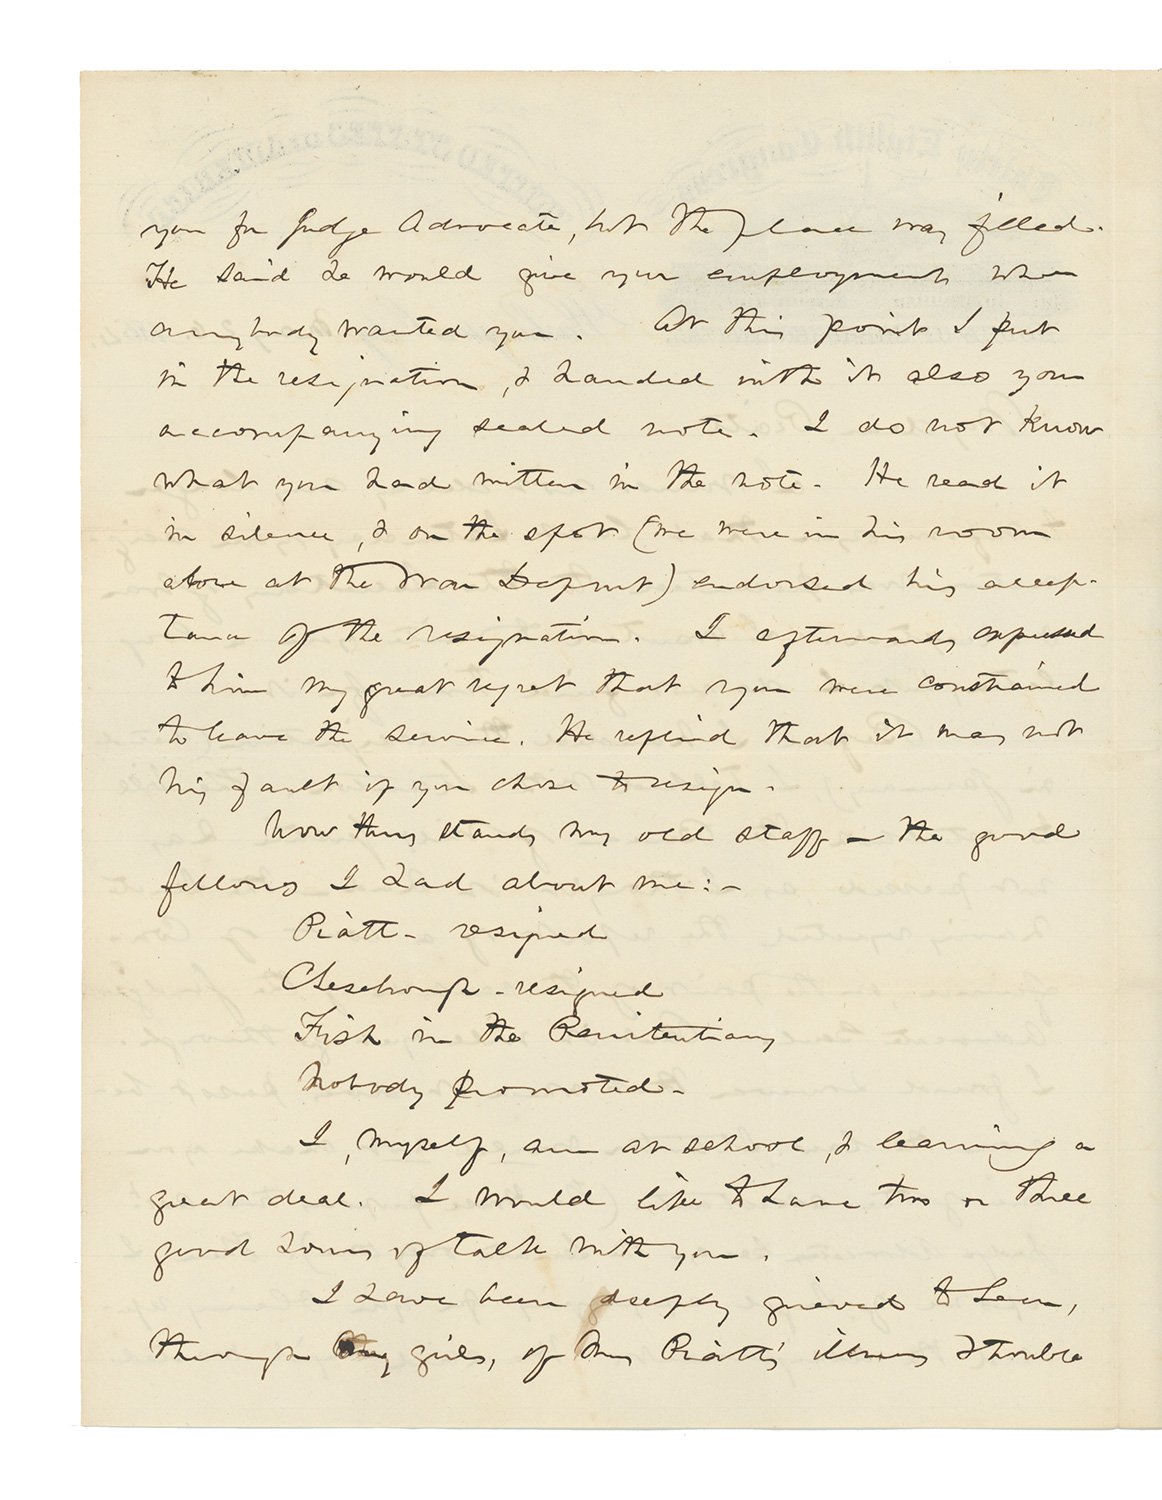 you for Judge Advocate, but the place was filled.
He said he would give you employment when
anybody wanted you. At this point I put
in the resignation, & handed with it also your
accompanying sealed note. I do not know
what you had written in the note. He read it
in silence, & on the spot (we were in his room
above at the War Depmt) endorsed his accep-
tance of the resignation. I afterwards expressed
to him my great regret that you were constrained
to leave the service. He replied that it was not
his fault if you chose to resign.
How thus stands my old staff — the good
fellows I had about me:—
Piatt - resigned
Chesebrough - resigned
Fish in the Penitentiary
Nobody promoted -
I, myself, am at school, & learning a
great deal. I would like to have two or three
good hours of talk with you.
I have been deeply grieved to hear,
through my girls, of Mrs Piatt's illness & trouble